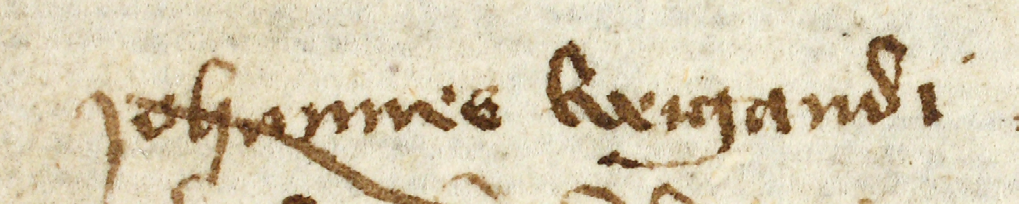 Johannes Weigandi